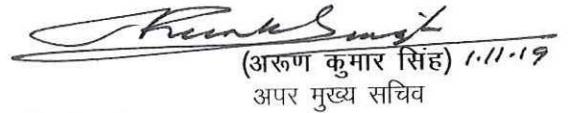 (अरूण कुमार सिंह) 1.11.19
अपर मुख्य सचिव